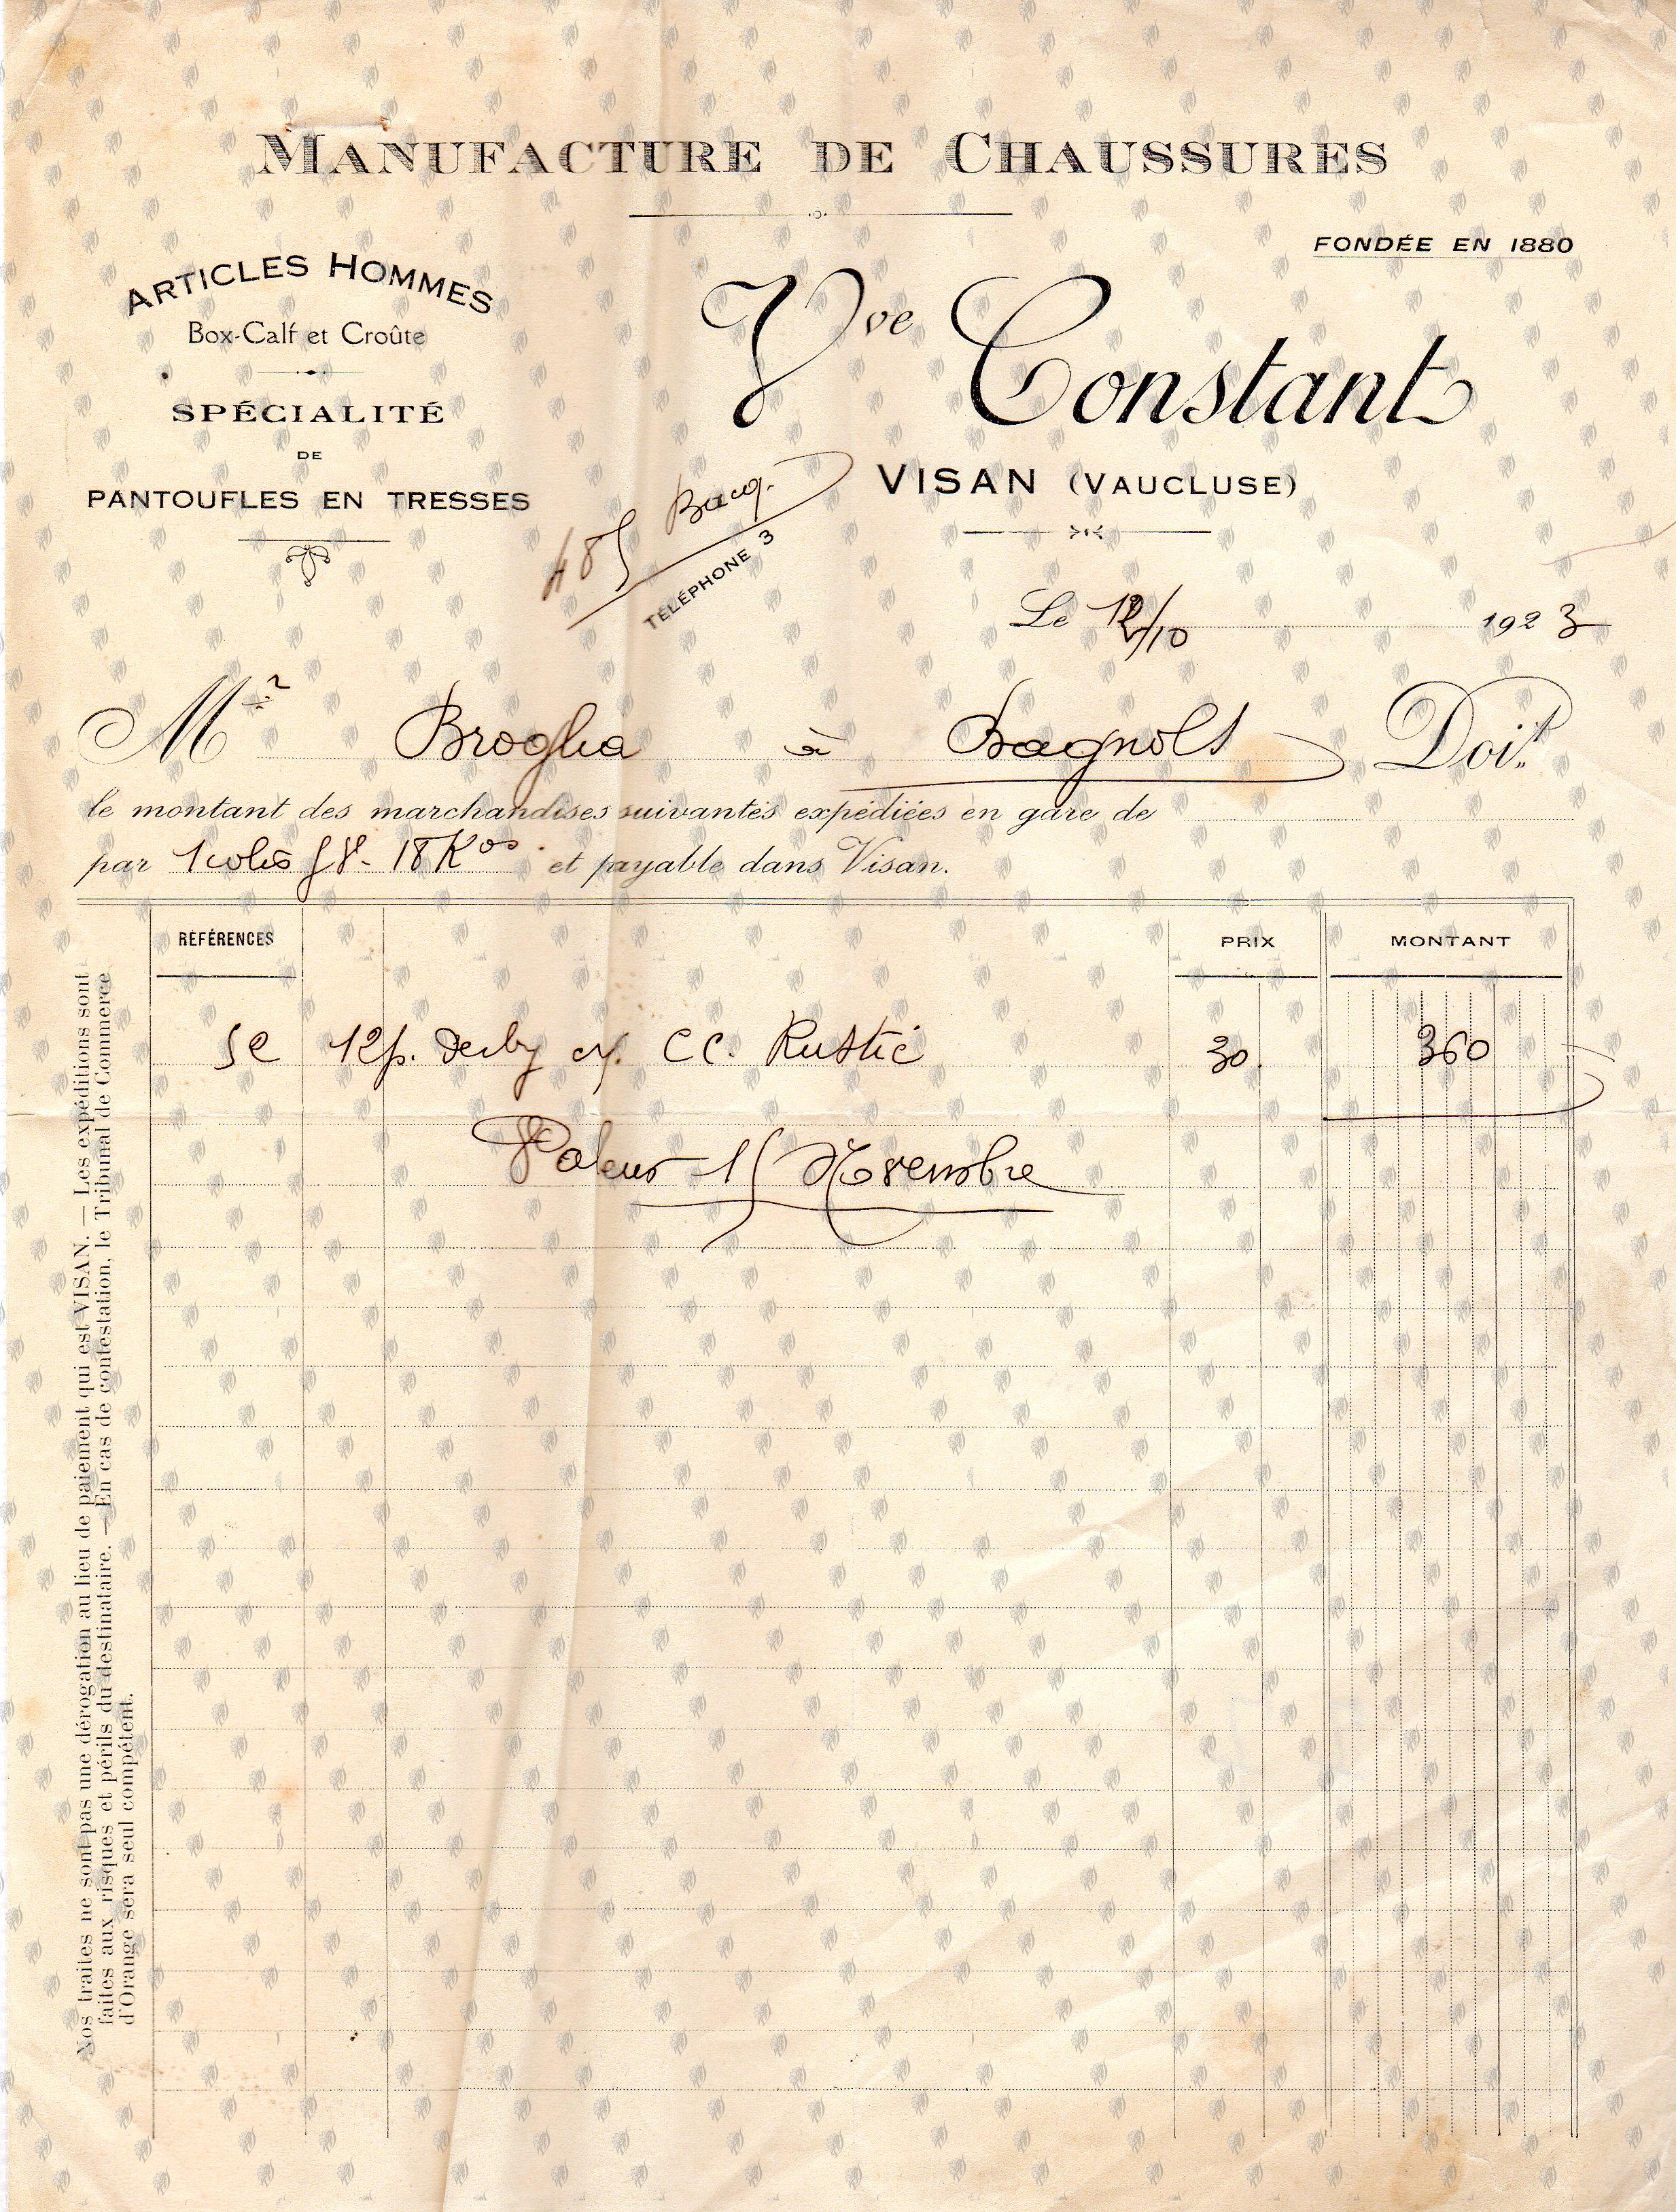 MANUFACTURE DE CHAUSSURES
FONDÉE EN 1880
ARTICLES HOMMES
Box-Calf et Croûte
SPÉCIALITÉ
DE
PANTOUFLES EN TRESSES
Vve Constant
VISAN (VAUCLUSE)
485 Bacq.
TÉLÉPHONE 3
Le 12/10 1923
Mr Broglia à Bagnols Doit
le montant des marchandises suivantes expédiées en gare de
par 1 colis 18 Kos et payable dans Visan.
RÉFÉRENCES PRIX MONTANT
12 p. derby CC. Rustic 30. 360
Valeur 15 Novembre
Nos traites ne sont pas une dérogation au lieu de paiement qui est VISAN. — Les expéditions sont
faites aux risques et périls du destinataire. — En cas de contestation, le Tribunal de Commerce
d'Orange sera seul compétent.